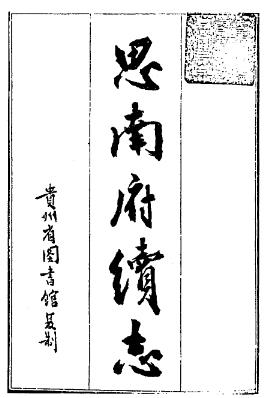 思南府續志
貴州省图書館复制